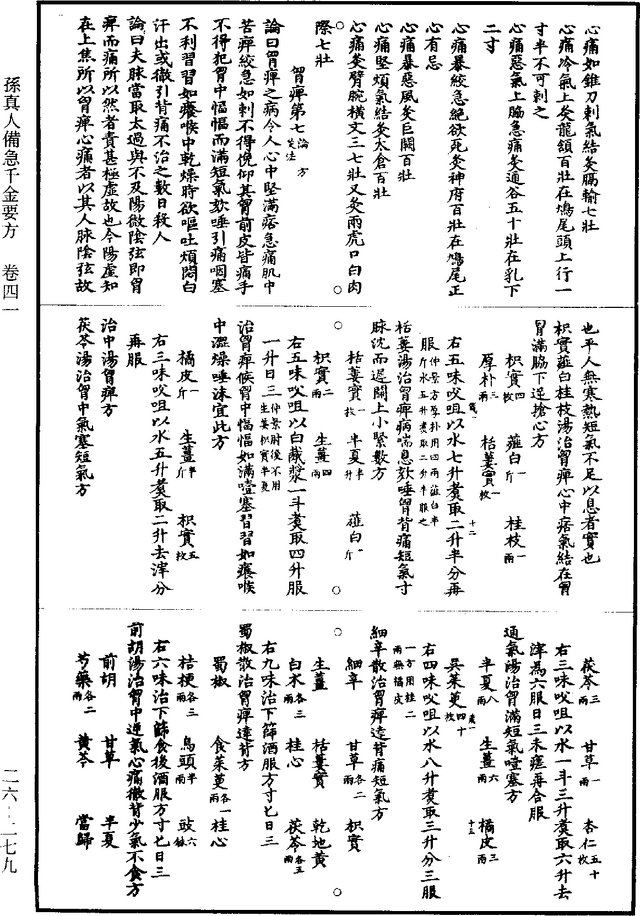 孫真人備急千金要方 卷四一
心痛如錐刀刺氣結灸膈輸七壯
心痛冷氣上灸龍頷百壯在鳩尾頭上行一
寸半不可刺之
心痛惡氣上脇急痛灸通谷五十壯在乳下
二寸
心痛暴絞急絕欲死灸神府百壯在鳩尾正
心有忌
心痛暴惡風灸巨闕百壯
心痛堅煩氣結灸太倉百壯
心痛灸臂腕橫文三七壯又灸兩虎口白肉
際七壯
胷痹第七論 方 灸法
論曰胷痹之病令人心中堅滿痞急痛肌中
苦痹絞急如刺不得俛仰其胷前皮皆痛手
不得犯胷中愊愊而滿短氣欬唾引痛咽塞
不利習習如癢喉中乾燥時欲嘔吐煩悶自
汗出或徹引背痛不治之數日殺人
論曰夫脉當取太過與不及陽微陰弦即胷
痹而痛所以然者責其極虛故也今陽虛知
在上焦所以胷痹心痛者以其人脉陰弦故
也平人無寒熱短氣不足以息者實也
枳實薤白桂枝湯治胷痹心中痞氣結在胷
胷滿脇下逆搶心方
枳實四枚 薤白一斤 桂枝一兩
厚朴三兩 栝蔞實一枚
右五味㕮咀以水七升煑取二升半分再
服仲景方厚朴用四兩薤白半斤水五升煑取二升半服之
栝蔞湯治胷痹病喘息欬唾胷背痛短氣寸
脉沈而遲關上小緊數方
栝蔞實一枚 半夏半升 薤白一斤
枳實二兩 生薑四兩
右五味㕮咀以白胾漿一斗煑取四升服
一升日三仲景肘後不用生薑枳實半夏
治胷痹候胷中愊愊如滿噎塞習習如癢喉
中澀燥唾沫宜此方
橘皮一斤 生薑半斤 枳實五枚
右三味㕮咀以水五升煑取二升去滓分
再服
治中湯胷痹方
茯苓湯治胷中氣塞短氣方
茯苓三兩 甘草一兩 杏仁五十枚
右三味㕮咀以水一斗三升煑取六升去
滓為六服日三未瘥再合服
通氣湯治胷滿短氣噎塞方
半夏八兩 生薑六兩 橘皮三兩
吳茱萸四十枚
右四味㕮咀以水八升煑取三升分三服
一方用桂二兩無橘皮
細辛散治胷痹達背痛短氣方
細辛 甘草各二兩 枳實
生薑 栝蔞實 乾地黃
白术各三兩 桂心 茯苓各五兩
右九味治下篩酒服方寸匕日三
蜀椒散治胷痹達背方
蜀椒 食茱萸各一兩 桂心
桔梗各三兩 烏頭半兩 豉六銖
右六味治下篩食後酒服方寸匕日三
前胡湯治胷中逆氣心痛徹背少氣不食方
前胡 甘草 半夏
芍藥各二兩 黃芩 當歸
二六-二七九